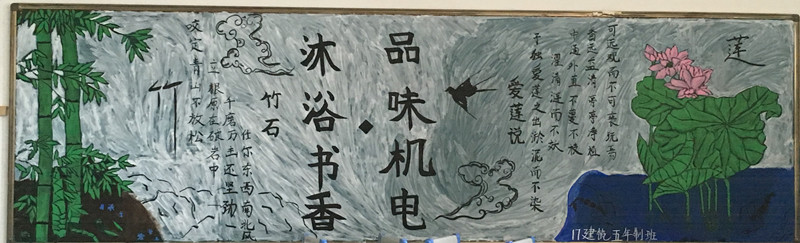 咬定青山不放松
竹
立根原在破岩中
千磨万击还坚劲一
任尔东西南北风
竹石
沐浴书香
品味机电
爱莲说
予独爱莲之出淤泥而不染
濯清涟而不妖
中通外直不蔓不枝
香远益清亭亭净植
可远观而不可亵玩焉
莲
17建筑五年制班